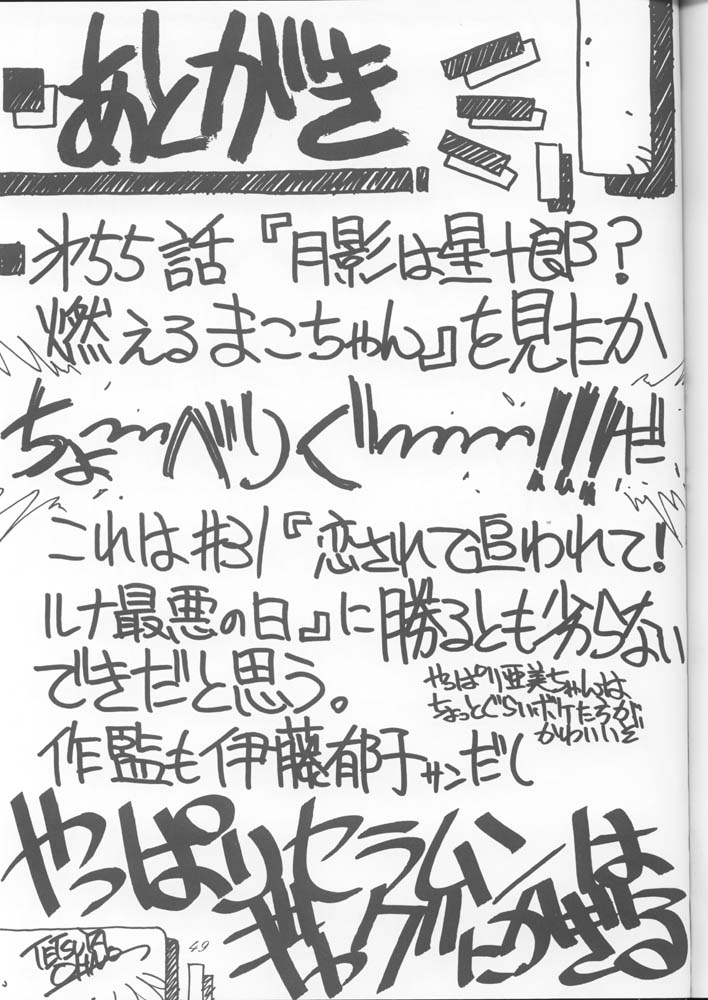 あとがき
才55話『月影は星十郎?
燃えるまこちゃん』を見たか
ちょ〜〜べりぐ〜〜〜〜!!!だ
これは#31『恋されて追われて!
ルナ最悪の日』に勝るとも劣らない
できだと思う。
やっぱり亜美ちゃんは
ちょっとぐらいボケたろが
かわいいぞ
作監も伊藤郁子サンだし
やっぱりセラムンは
ギャグにかぎる
TETSUYA
49